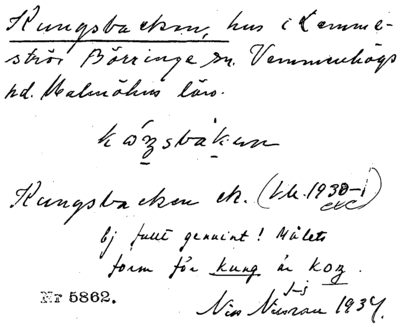 Kungsbacken, hus i Lemme-
ströi Börringe sn. Vemmenhögs
hd. Malmöhus län.
Kungsbacken ek. (J.k. 1930-1
Ej fullt genuint! Målets
form för kung är koŋ.
Nr 5862.
Nils 1934.